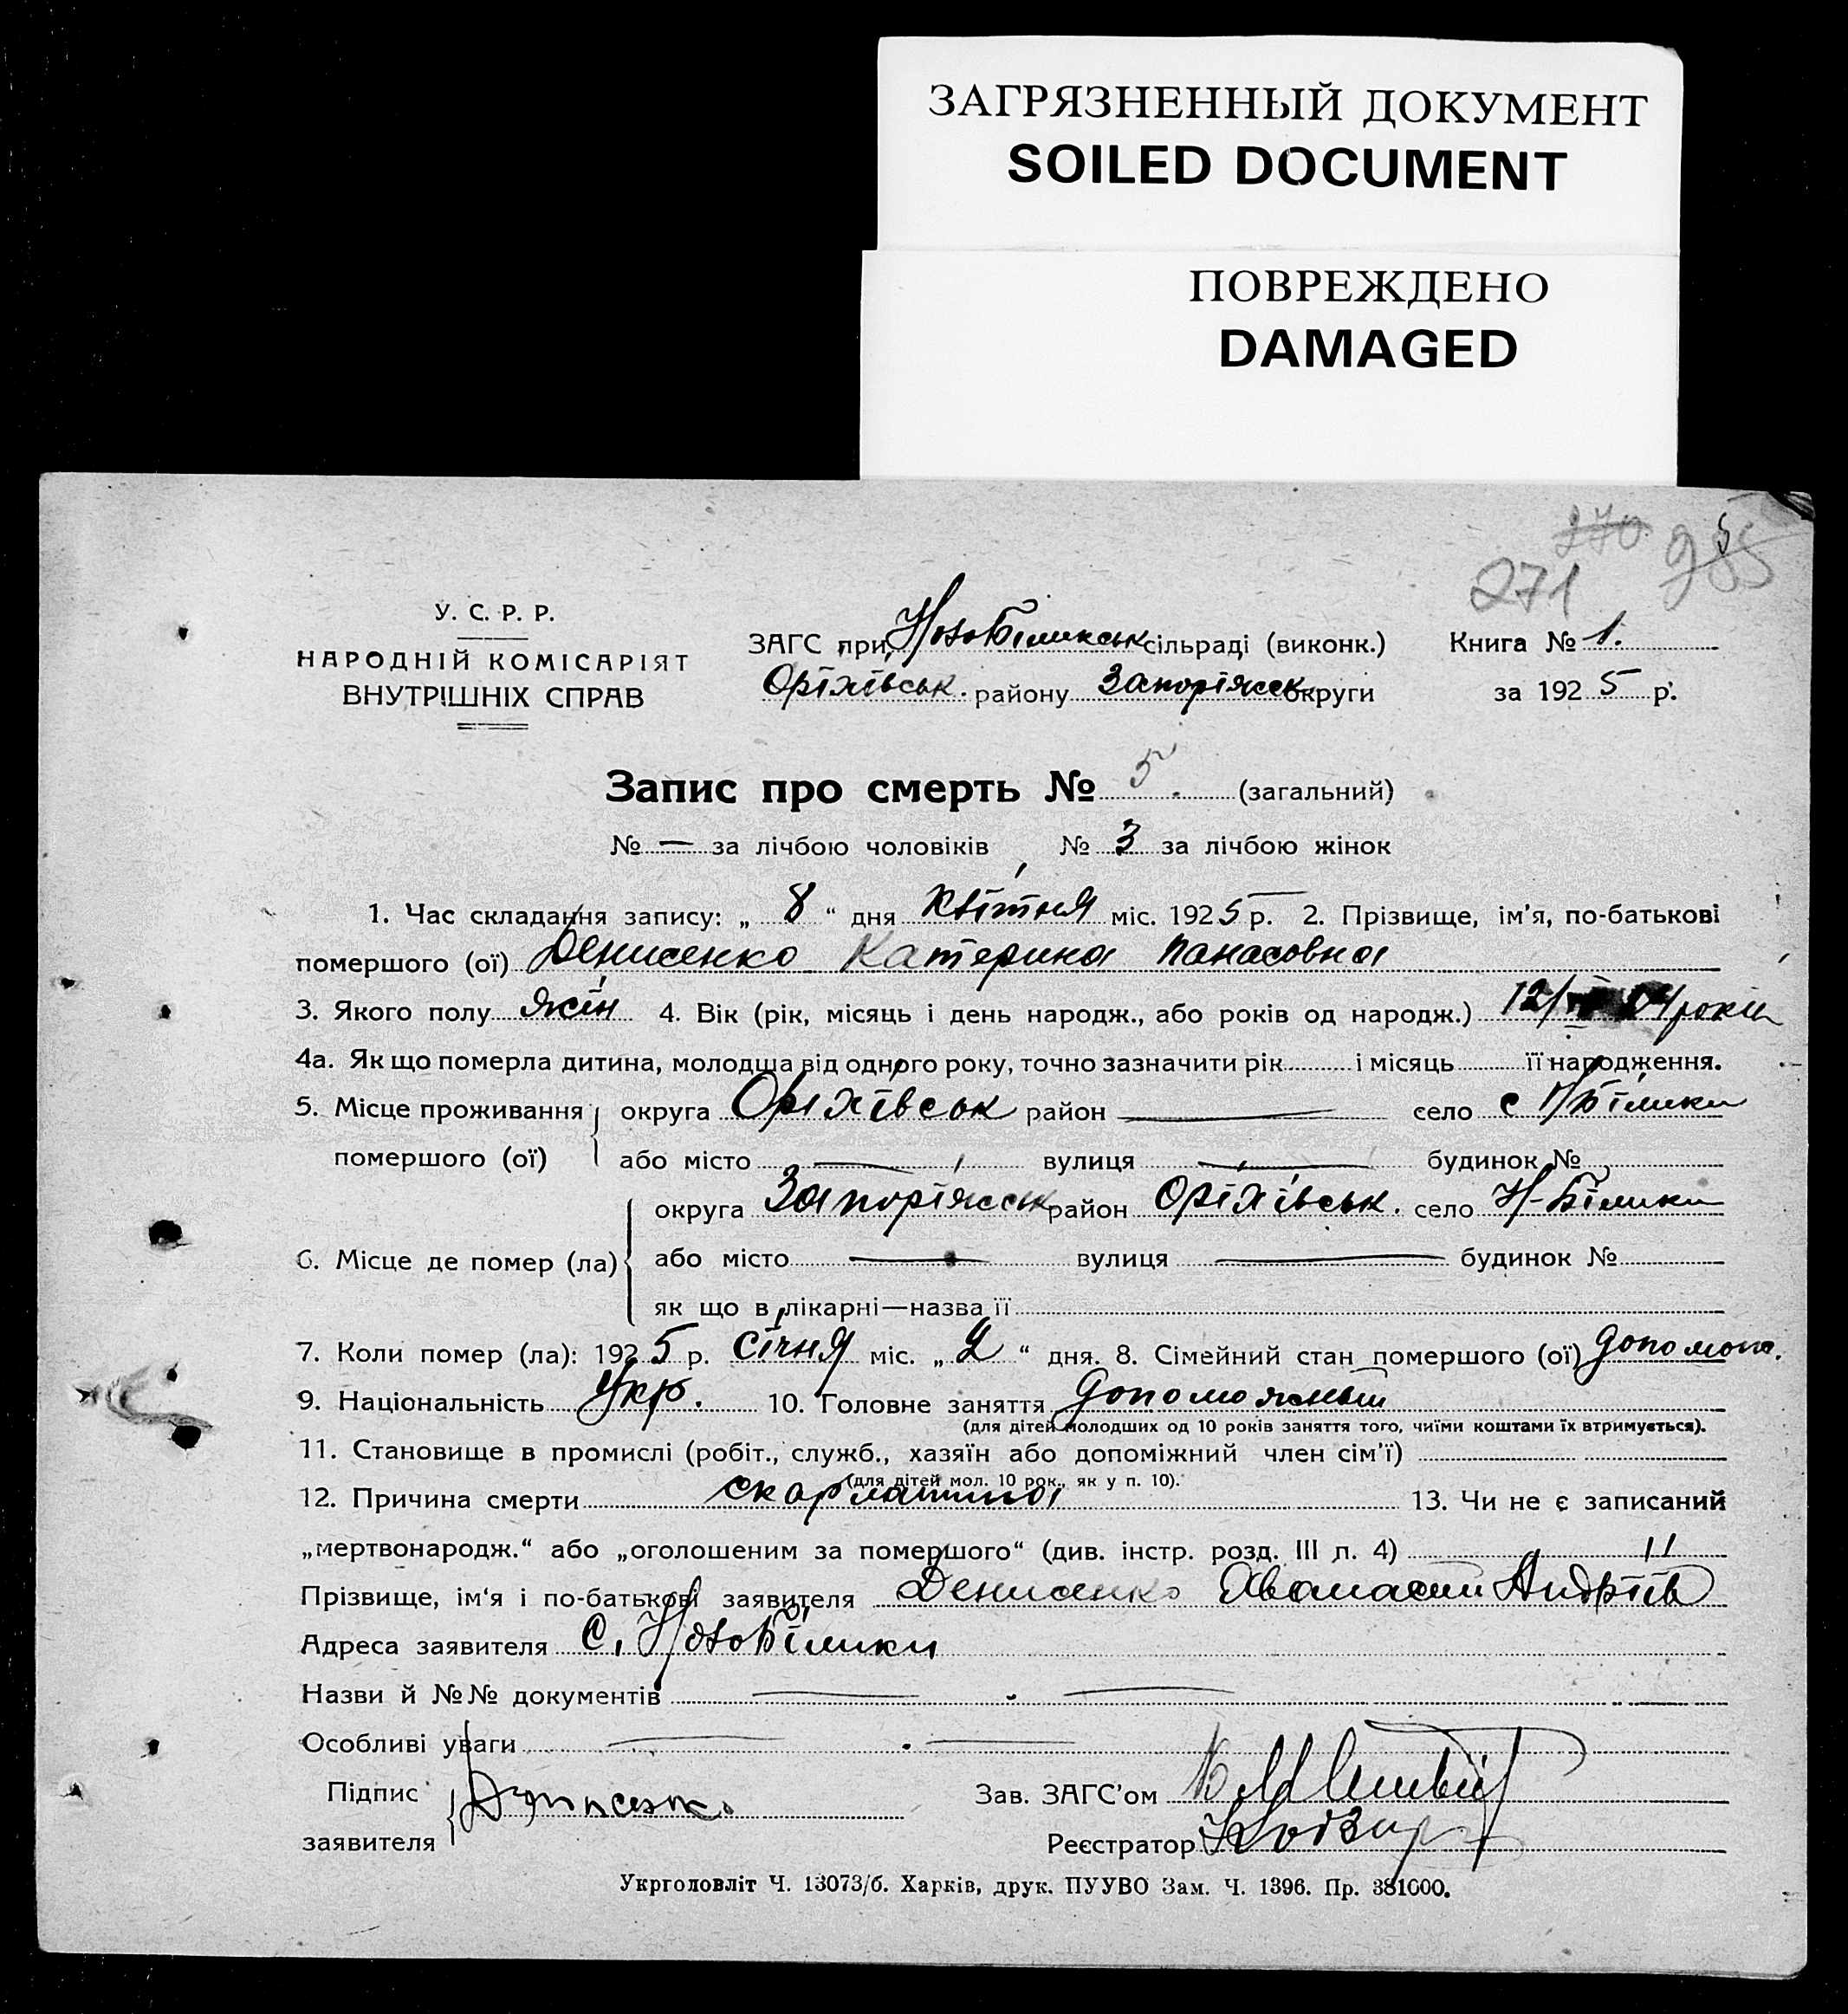 ЗАГРЯЗНЕННЫЙ ДОКУМЕНТ
SOILED DOCUMENT
ПОВРЕЖДЕНО
DAMAGED
270 985
271
У. С. Р. Р.
НАРОДНІЙ КОМІСАРІЯТ
ВНУТРІШНІХ СПРАВ
ЗАГС при НовоБіликськ сільраді (виконк.) Книга № 1.
Оріхівськ. району Запоріжськ округи за 1925 р.
Запис про смерть № 5. (загальний)
№ — за лічбою чоловіків № 3 за лічбою жінок
1. Час складання запису: „ 8 “ дня Квітня міс. 1925 р. 2. Прізвище, ім'я, по-батькові
помершого (ої) Денисенко Катерина Панасовна
3. Якого полу жін 4. Вік (рік, місяць і день народж., або років од народж.) 12/ роки
4а. Як що померла дитина, молодша від одного року, точно зазначити рік і місяць її народження.
5. Місце проживання округа Оріхівськ район — село с Н/Білики
помершого (ої) або місто — вулиця — будинок №
округа Запоріжськ район Оріхівськ. село Н-Білики
6. Місце де помер (ла) або місто — вулиця — будинок №
як що в лікарні—назва її
7. Коли помер (ла): 1925 р. Січня міс. „ 2 “ дня. 8. Сімейний стан помершого (ої) допомож.
9. Національність Укр. 10. Головне заняття допоможный
(для дітей молодших од 10 років заняття того, чиїми коштами їх втримується).
11. Становище в промислі (робіт., служб., хазяїн або допоміжний член сім'ї)
(для дітей мол. 10 рок., як у п. 10).
12. Причина смерти скарлатина 13. Чи не є записаний
„мертвонародж.“ або „оголошеним за помершого“ (див. інстр. розд. III п. 4)
Прізвище, ім'я і по-батькові заявителя Денисенко Афанасий Андріїв
Адреса заявителя с. НовоБілики
Назви й №№ документів — —
Особливі уваги — —
Підпис Денисенко Зав. ЗАГС'ом
заявителя Реєстратор
Укрголовліт Ч. 13073/б. Харків, друк. ПУУВО Зам. Ч. 1396. Пр. 381000.